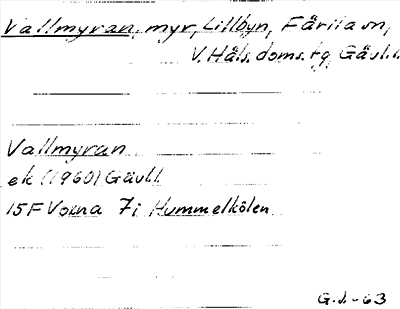 Vallmyran, myr, Lillbyn, Färila sn,
V. Häls. doms. tg, Gävl. l.
Vallmyran
ek (1960) Gävl.l.
15F Voxna 7i Hummelkölen
G.J.-63